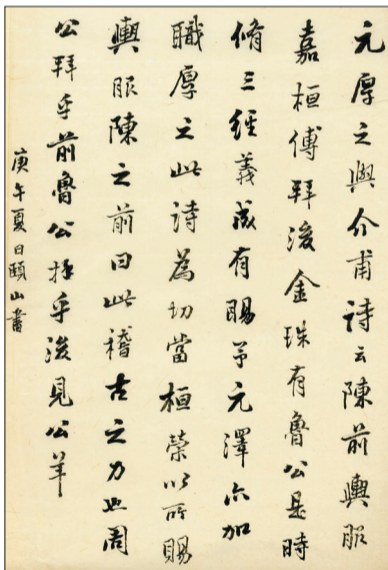 元厚之與介甫詩云陳前輿服
嘉桓傅拜後金珠有魯公是時
脩三經義成有賜予元澤亦加
職厚之此詩為切當桓榮以所賜
輿服陳之前曰此稽古之力也周
公拜乎前魯公拜乎後見公羊
庚午夏日頤山書